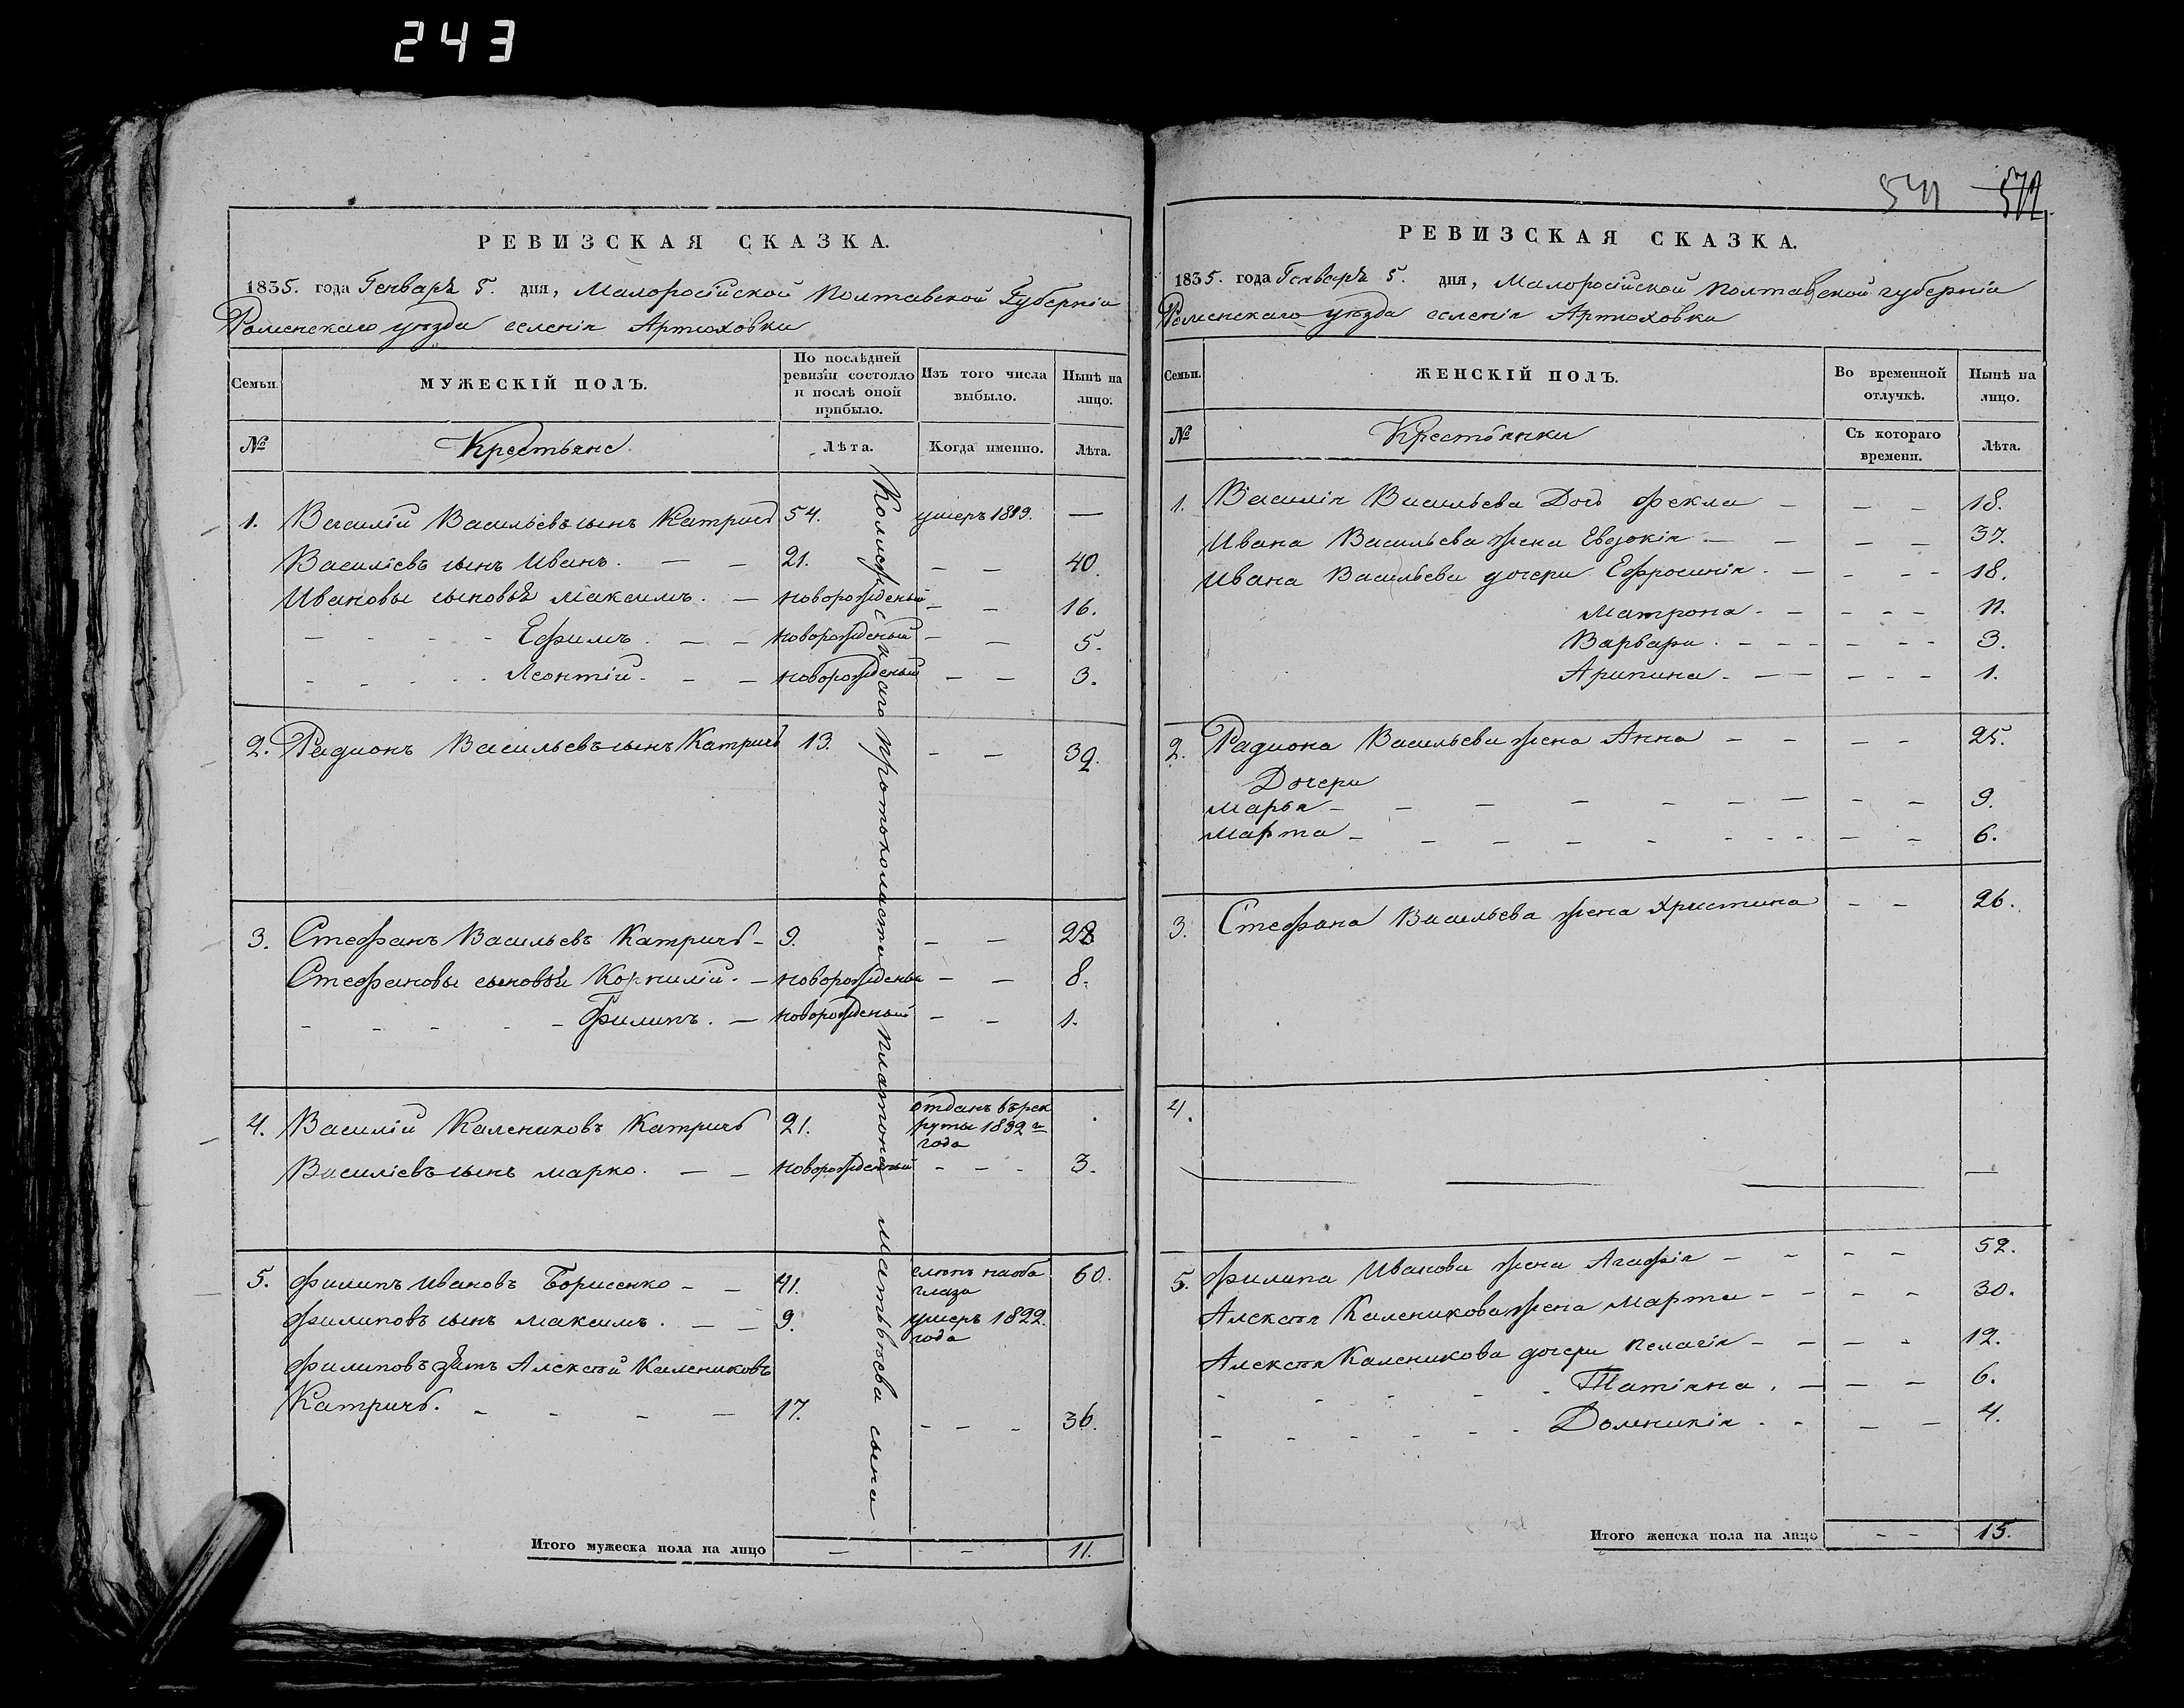 243
РЕВИЗСКАЯ СКАЗКА.
1835. года Генваря 5. дня, Малоросійской Полтавской Губерніи
Роменскаго уѣзда селенія Артюховки
Семьи. МУЖЕСКІЙ ПОЛЪ. По послѣдней ревизіи состояло и послѣ оной прибыло. Изъ того числа выбыло. Нынѣ на лицо.
№ Крестьяне Лѣта. Когда именно. Лѣта.
1. Василій Васильевъ сынъ Катричъ 54. умеръ 1819. —
Василіевъ сынъ Иванъ. — — 21. — — 40.
Ивановы сыновья Максимъ. — новорожденый — — 16.
— - - - - Ефимъ. — — новорожденый — — 5.
- - - - - Леонтій. - — новорожденый — — 3.
2. Радионъ Васильевъ сынъ Катричъ 13. — — 32.
3. Стефанъ Васильевъ Катричъ - 9. — — 28
Стефановы сыновья Корнилій. — новорожденый — — 8.
- - - - - - Филипъ. — новорожденый — — 1.
4. Василій Калениковъ Катричъ 21. отданъ въ рек
руты 1832 г
года
Василіевъ сынъ Марко. — — новорожденный - - - 3.
5. Филипъ Ивановъ Борисенко - - 41. слѣпъ на оба
глаза 60.
Филиповъ сынъ Максимъ. — — 9. умеръ 1822.
года
Филиповъ зять Алексѣй Калениковъ
Катричъ. - - - — 17. - - - 36.
Итого мужеска пола на лицо — — 11.
Колежскаго протоколиста Платона Матвѣева сына
541 572
РЕВИЗСКАЯ СКАЗКА.
1835. года Генваря 5. дня, Малоросійской Полтавской губерніи
Роменскаго уѣзда селенія Артюховки
Семьи. ЖЕНСКІЙ ПОЛЪ. Во временной отлучкѣ. Нынѣ на лицо.
№ Крестьянки Съ котораго времени. Лѣта.
1. Василія Васильева Дочь Фекла - — - 18.
Ивана Васильева жена Евдокія - — — — 37.
Ивана Васильева дочери Ефросинія - — - - - 18.
Матрона - — - - - 11.
Варвара. - - - — - - 3.
Арипина - — — - - 1.
2. Радиона Васильева жена Анна - - — - 25.
Дочери
Марья - - - - - - — - - 9.
Марта - - - - - - - - — - 6.
3. Стефана Васильева жена Христина - - 26.
4.
— — — —
5. Филипа Иванова жена Агафія - - - - 52.
Алексѣя Каленикова жена Марта - - - - 30.
Алексѣя Каленикова дочери Пелагія - — — - 12.
- - - - - Татіяна. - — — 6.
- - - - - - Домникія - - — — 4.
Итого женска пола на лицо - - 15.